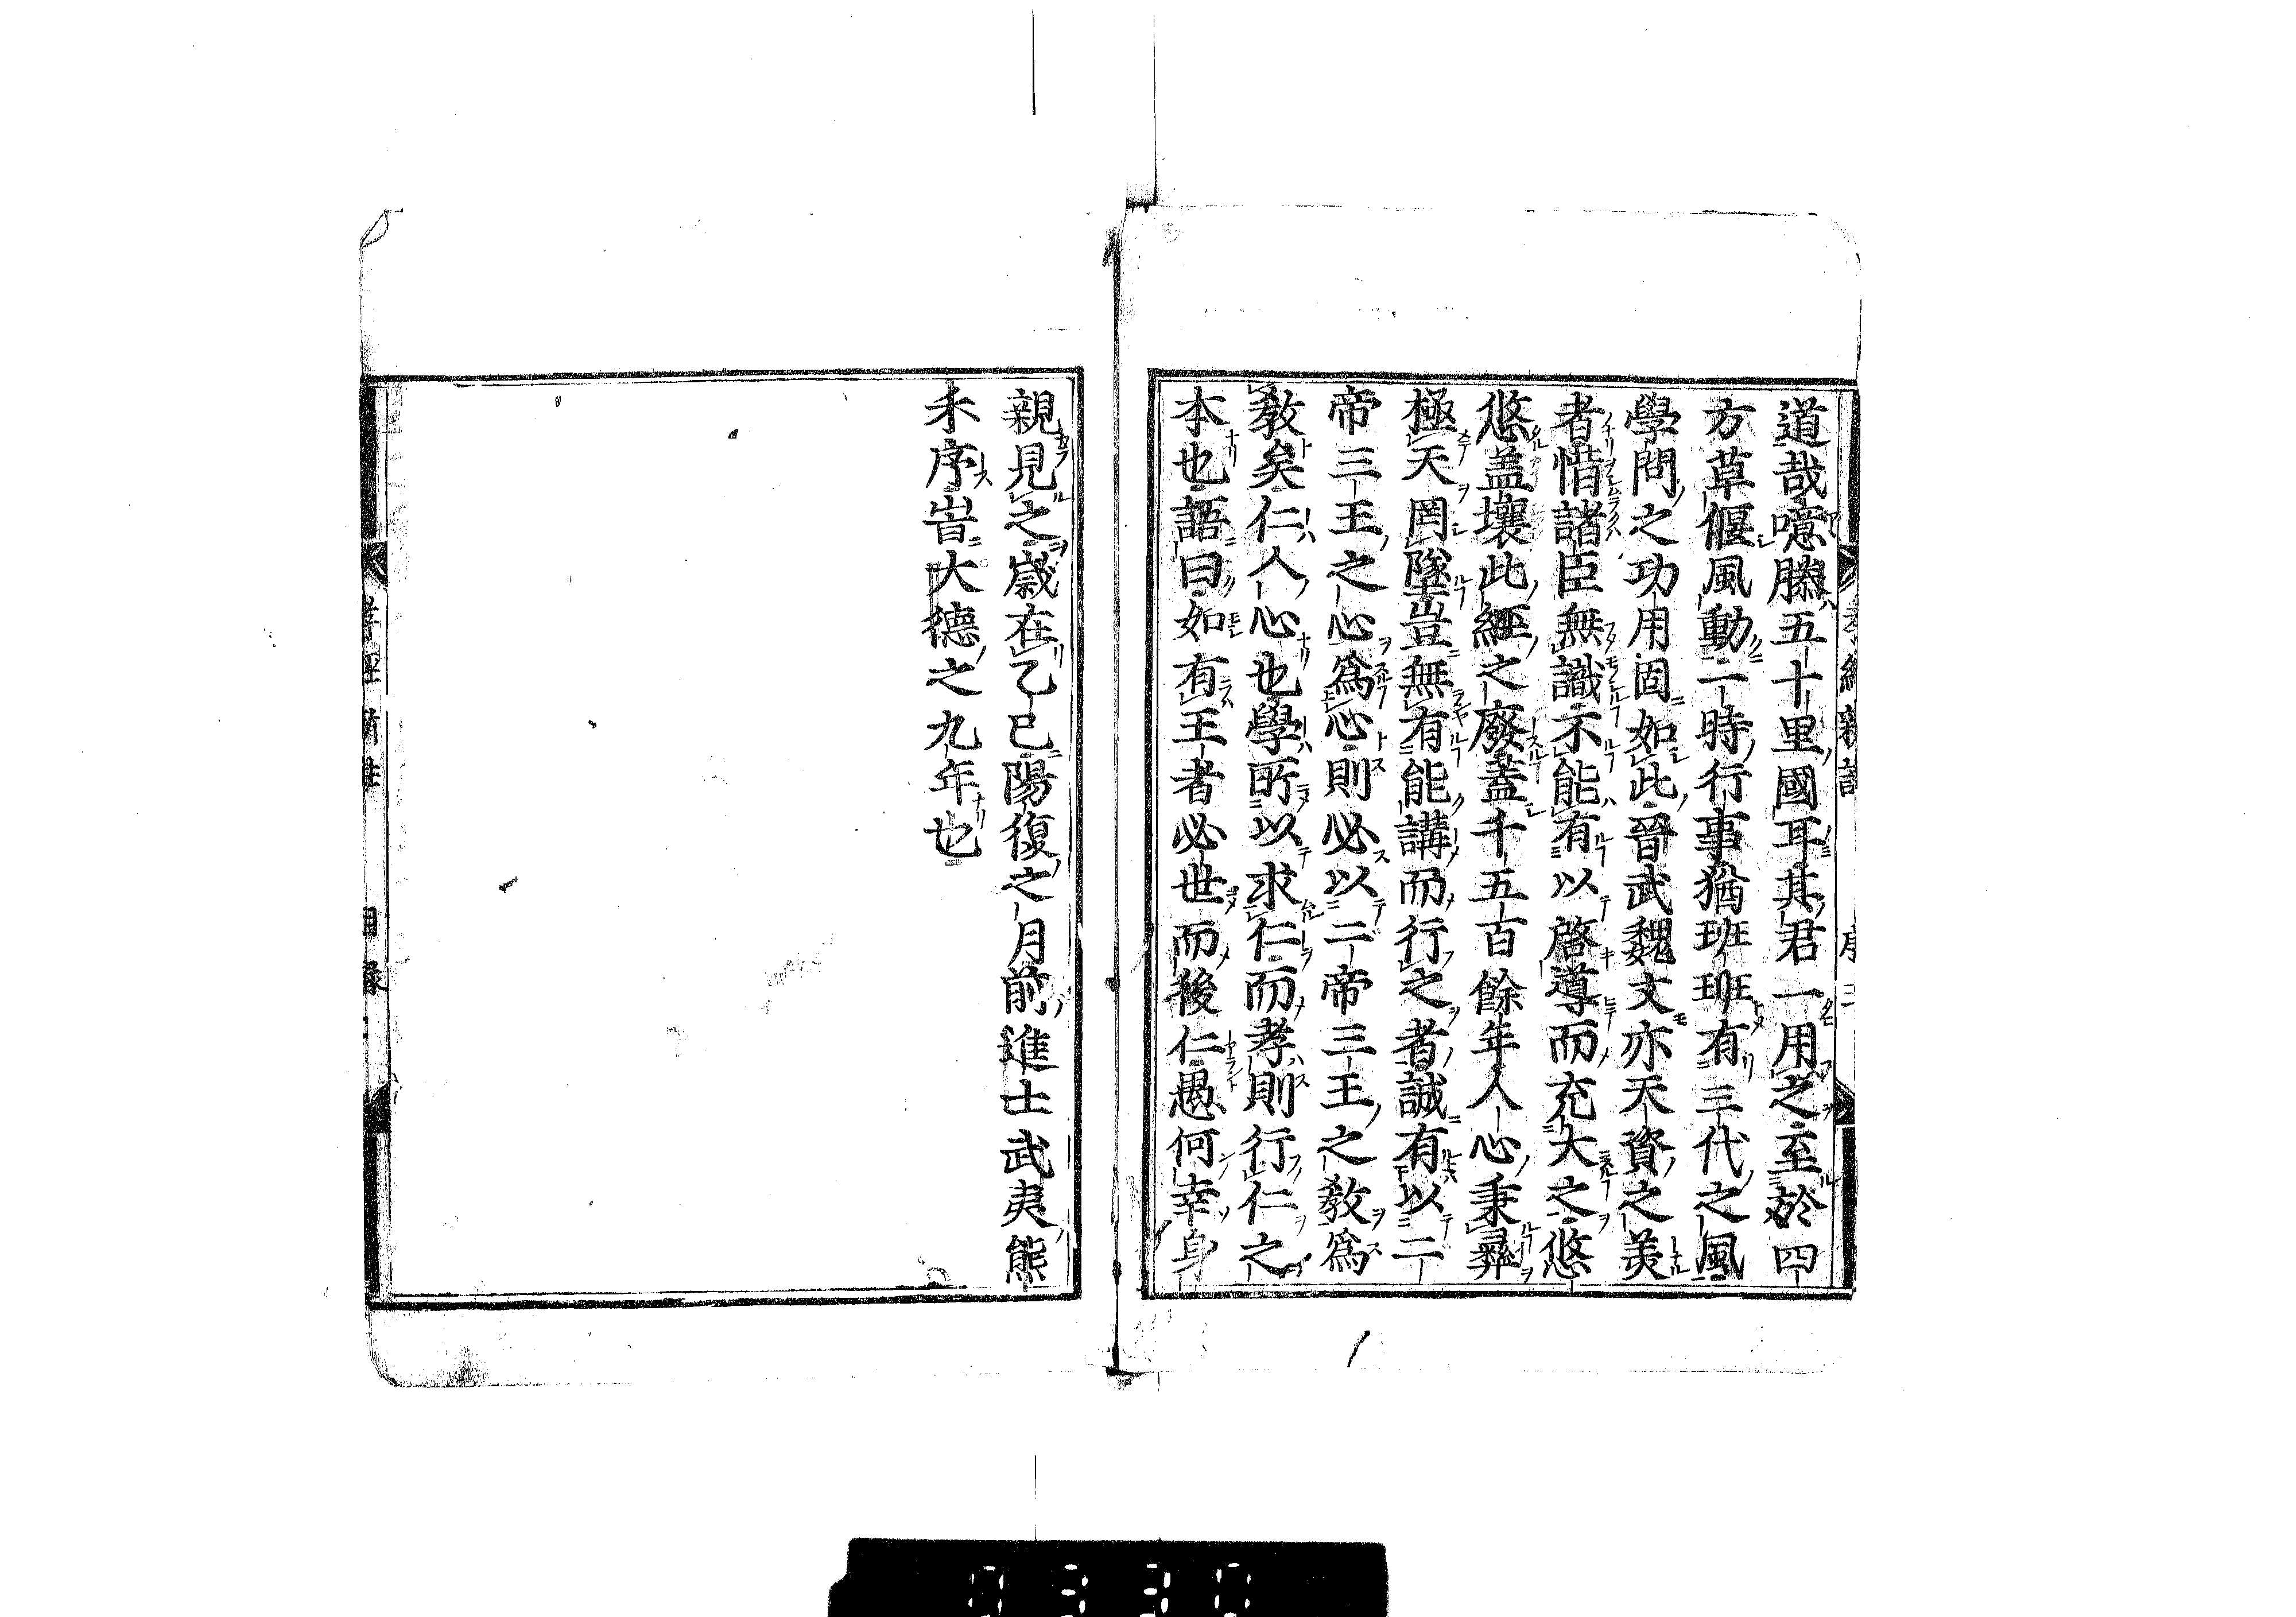 道哉噫滕五十里國耳其君一用之至於四
方草偃風動一時行事猶班班有三代之風
學問之功用固如此晉武魏文亦天資之美
者惜諸臣無識不能有以啓導而充大之悠
悠蓋壤此經之廢蓋千五百餘年人心秉彝
極天罔墜豈無有能講而行之者誠有以二
帝三王之心爲心則必以二帝三王之教爲
教矣仁人心也學所以求仁而孝則行仁之
本也語曰如有王者必世而後仁愚何幸身
親見之歲在乙巳陽復之月前進士武夷熊
禾序旹大德之九年也
孝經新註 目錄